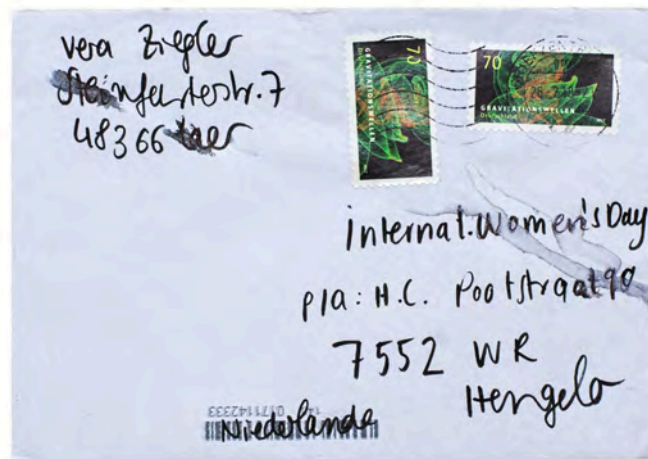 Vera Ziegler
Steinfurterstr. 7
48366 Laer
70
GRAVITATIONSWELLEN
Deutschland
70
GRAVITATIONSWELLEN
Deutschland
internat. Women's Day
p/a: H.C. Pootstraat 90
7552 WR
Hengelo
0171142333
Niederlande